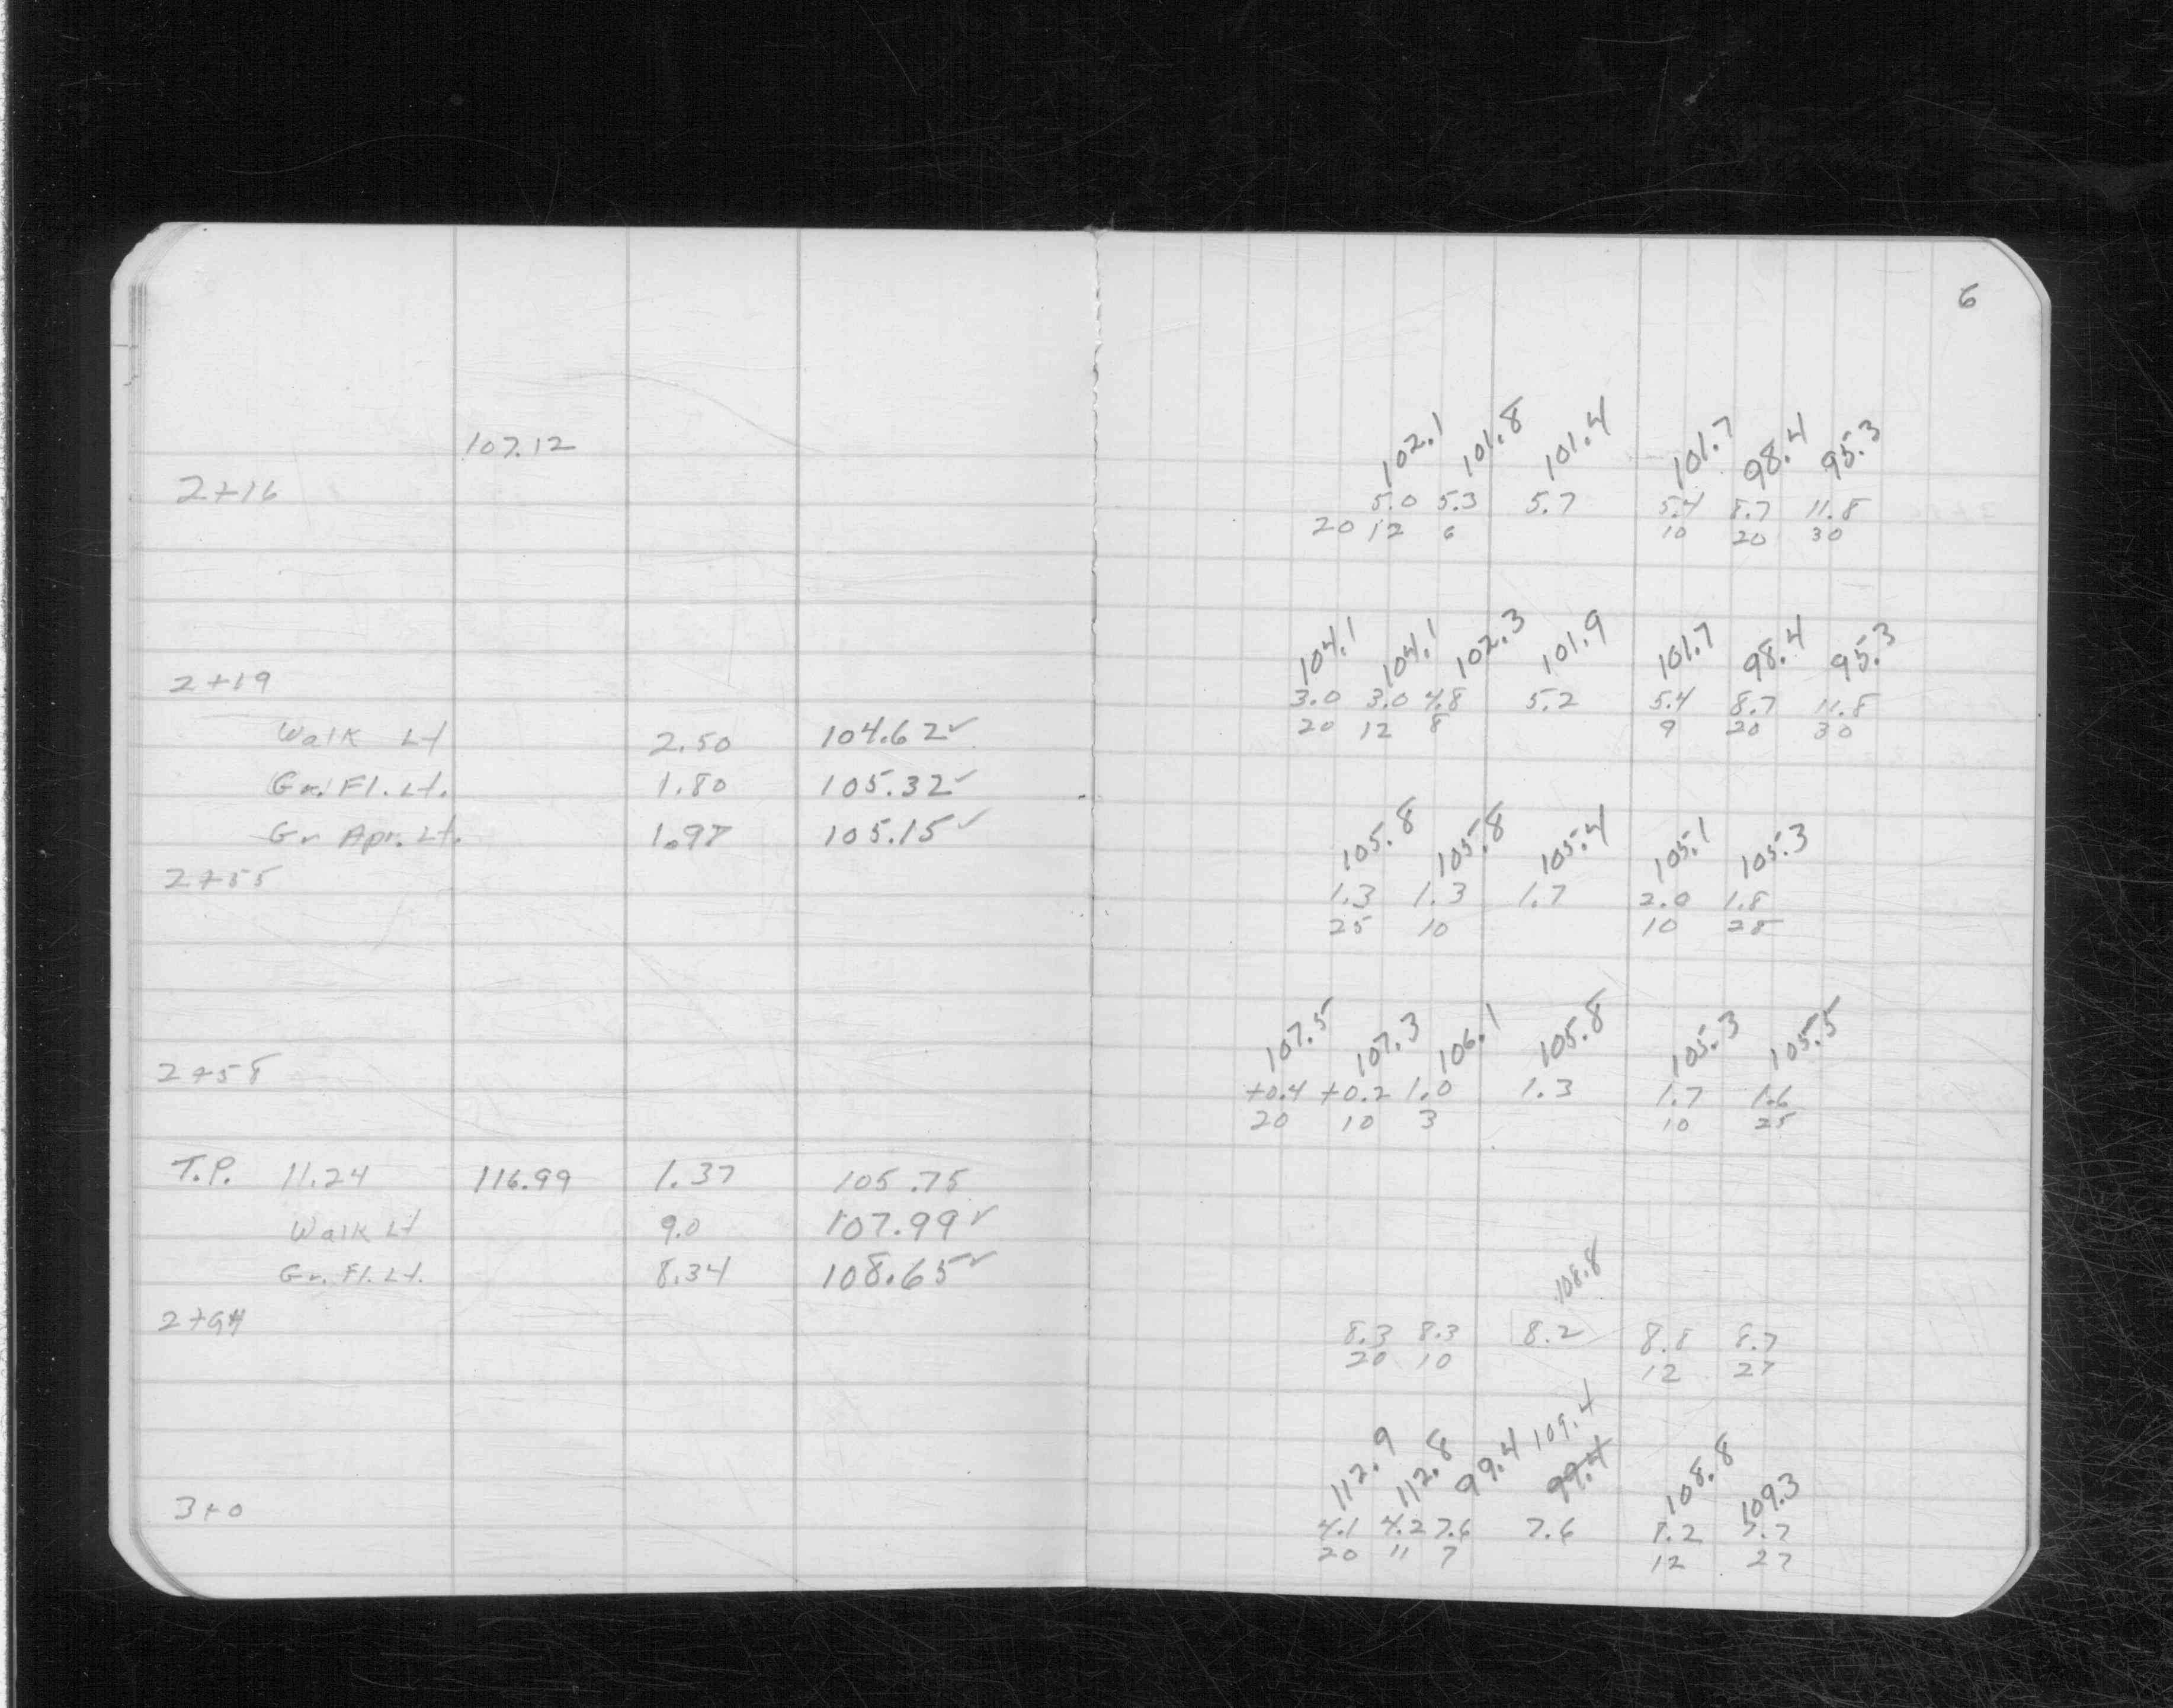 6
107.12
102.1 101.8 101.4 101.7 98.4 95.3
2+16 5.0 5.3 5.7 5.4 8.7 11.8
20 12 6 10 20 30
104.1 104.1 102.3 101.9 101.7 98.4 95.3
2+19 3.0 3.0 4.8 5.2 5.4 8.7 11.8
20 12 8 9 20 30
Walk Lt 2.50 104.62✓
Gr. Fl. Lt. 1.80 105.32✓
Gr Apr. Lt. 1.97 105.15✓
105.8 105.8 105.4 105.1 105.3
2+55 1.3 1.3 1.7 2.0 1.8
25 10 10 25
107.5 107.3 106.1 105.8 105.3 105.5
2+58 +0.4 +0.2 1.0 1.3 1.7 1.6
20 10 3 10 25
T.P. 11.24 116.99 1.37 105.75
Walk Lt 9.0 107.99✓
Gr. Fl. Lt. 8.34 108.65✓
108.8
2+94 8.3 8.3 8.2 8.8 8.7
20 10 12 27
109.4
112.9 112.8 99.4 99.4 108.8 109.3
3+0 4.1 4.2 7.6 7.6 8.2 7.7
20 11 7 12 27